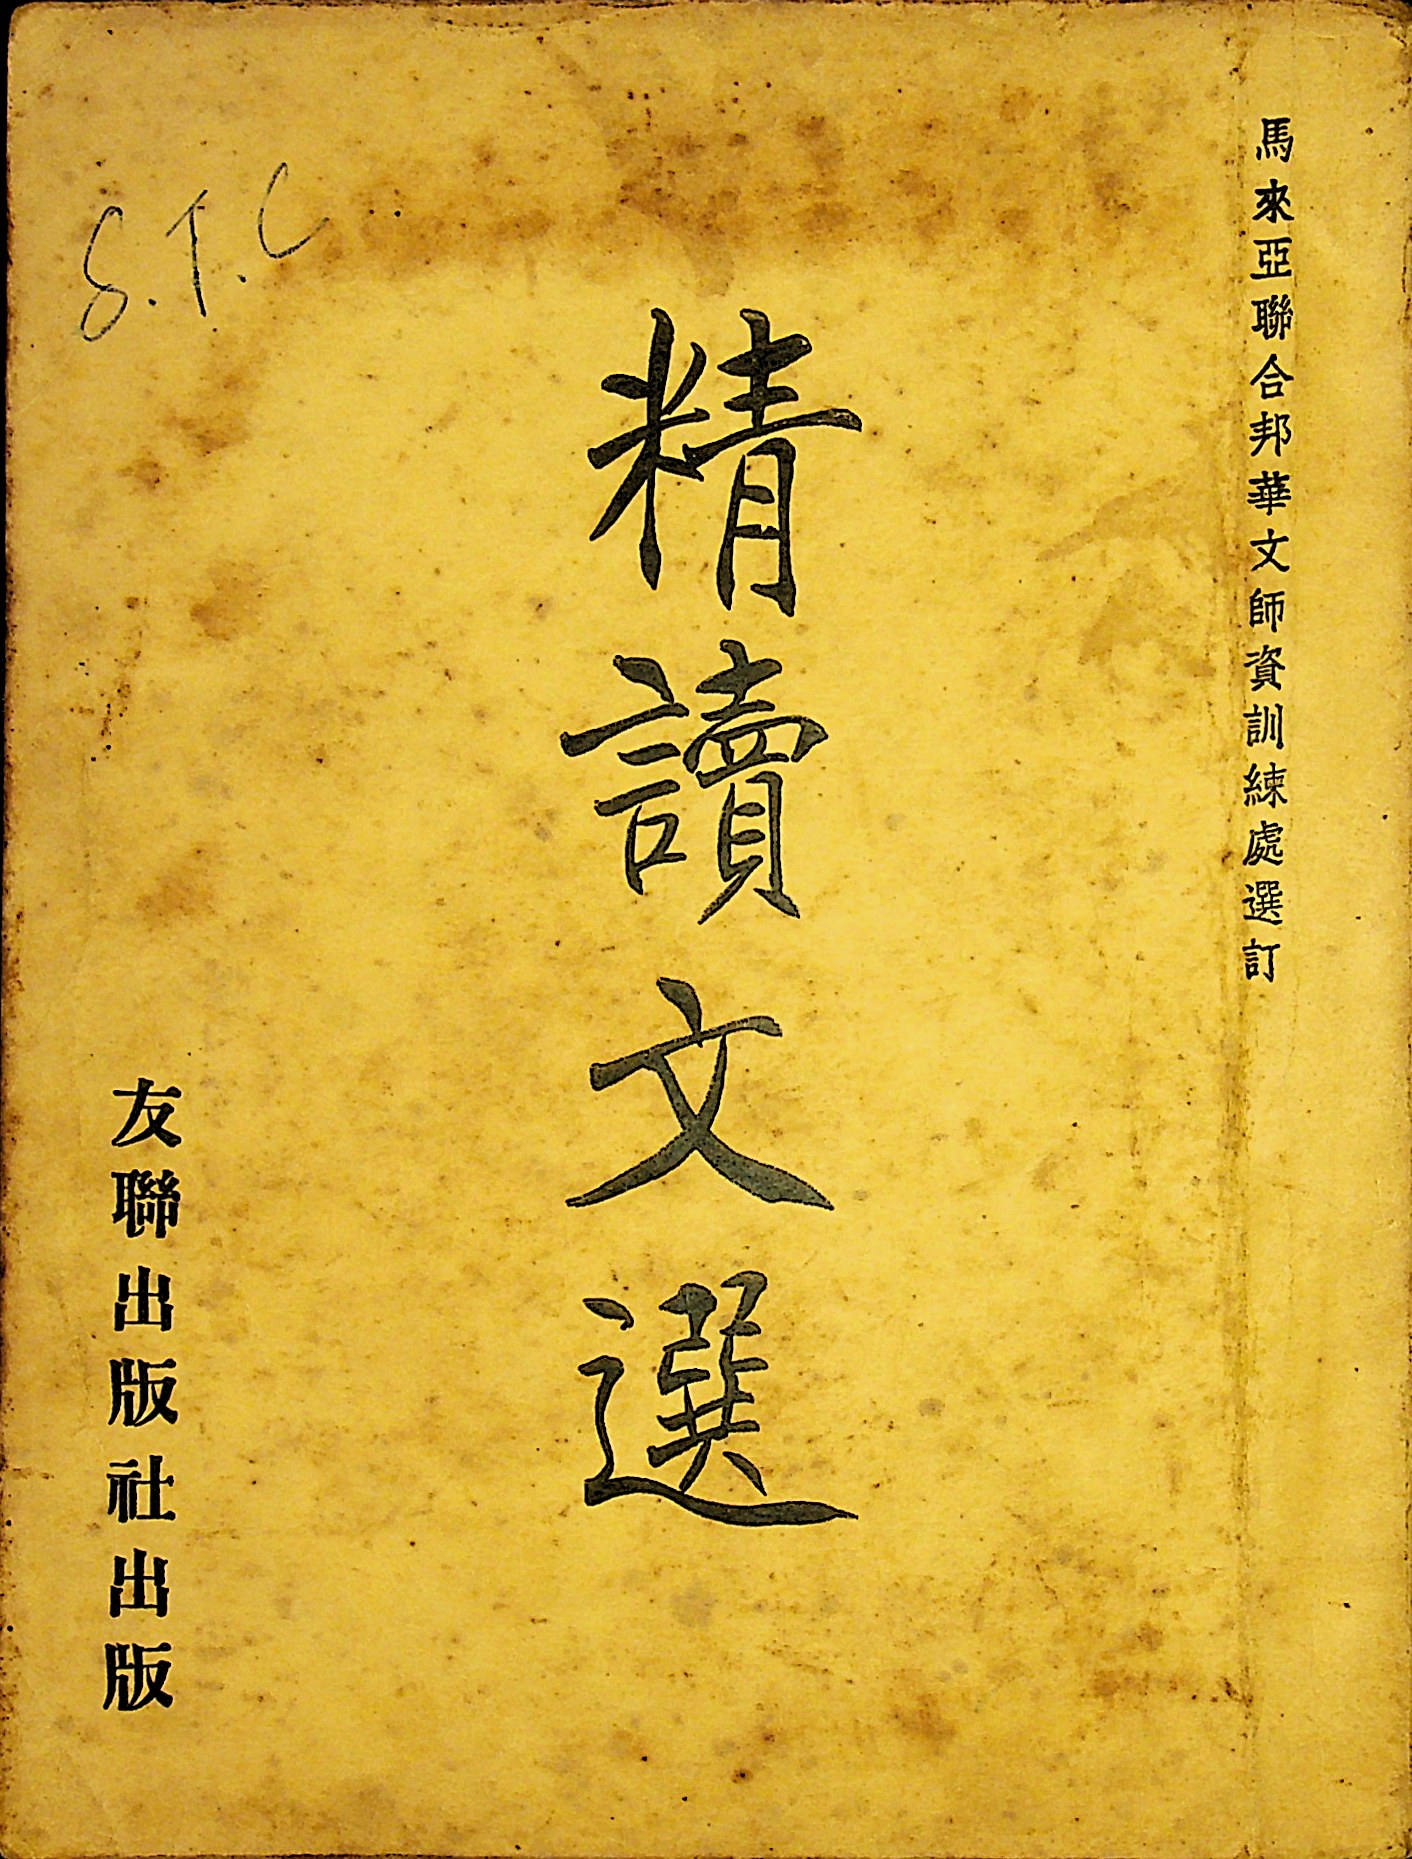 馬來亞聯合邦華文師資訓練處選訂
精讀文選
友聯出版社出版
S.T.C